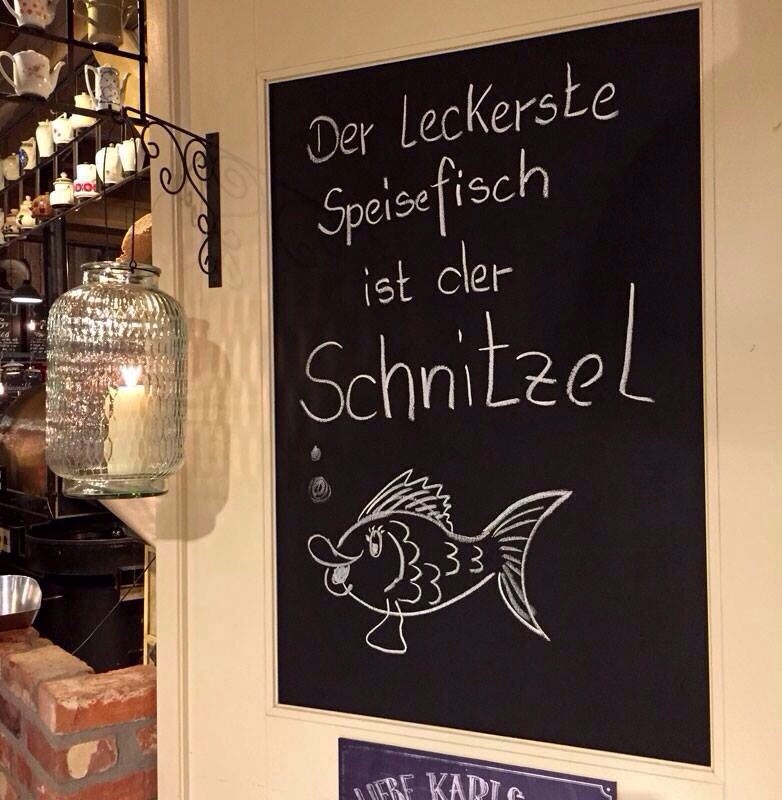 Der Leckerste
Speisefisch
ist der
Schnitzel
LIEBE KARLS